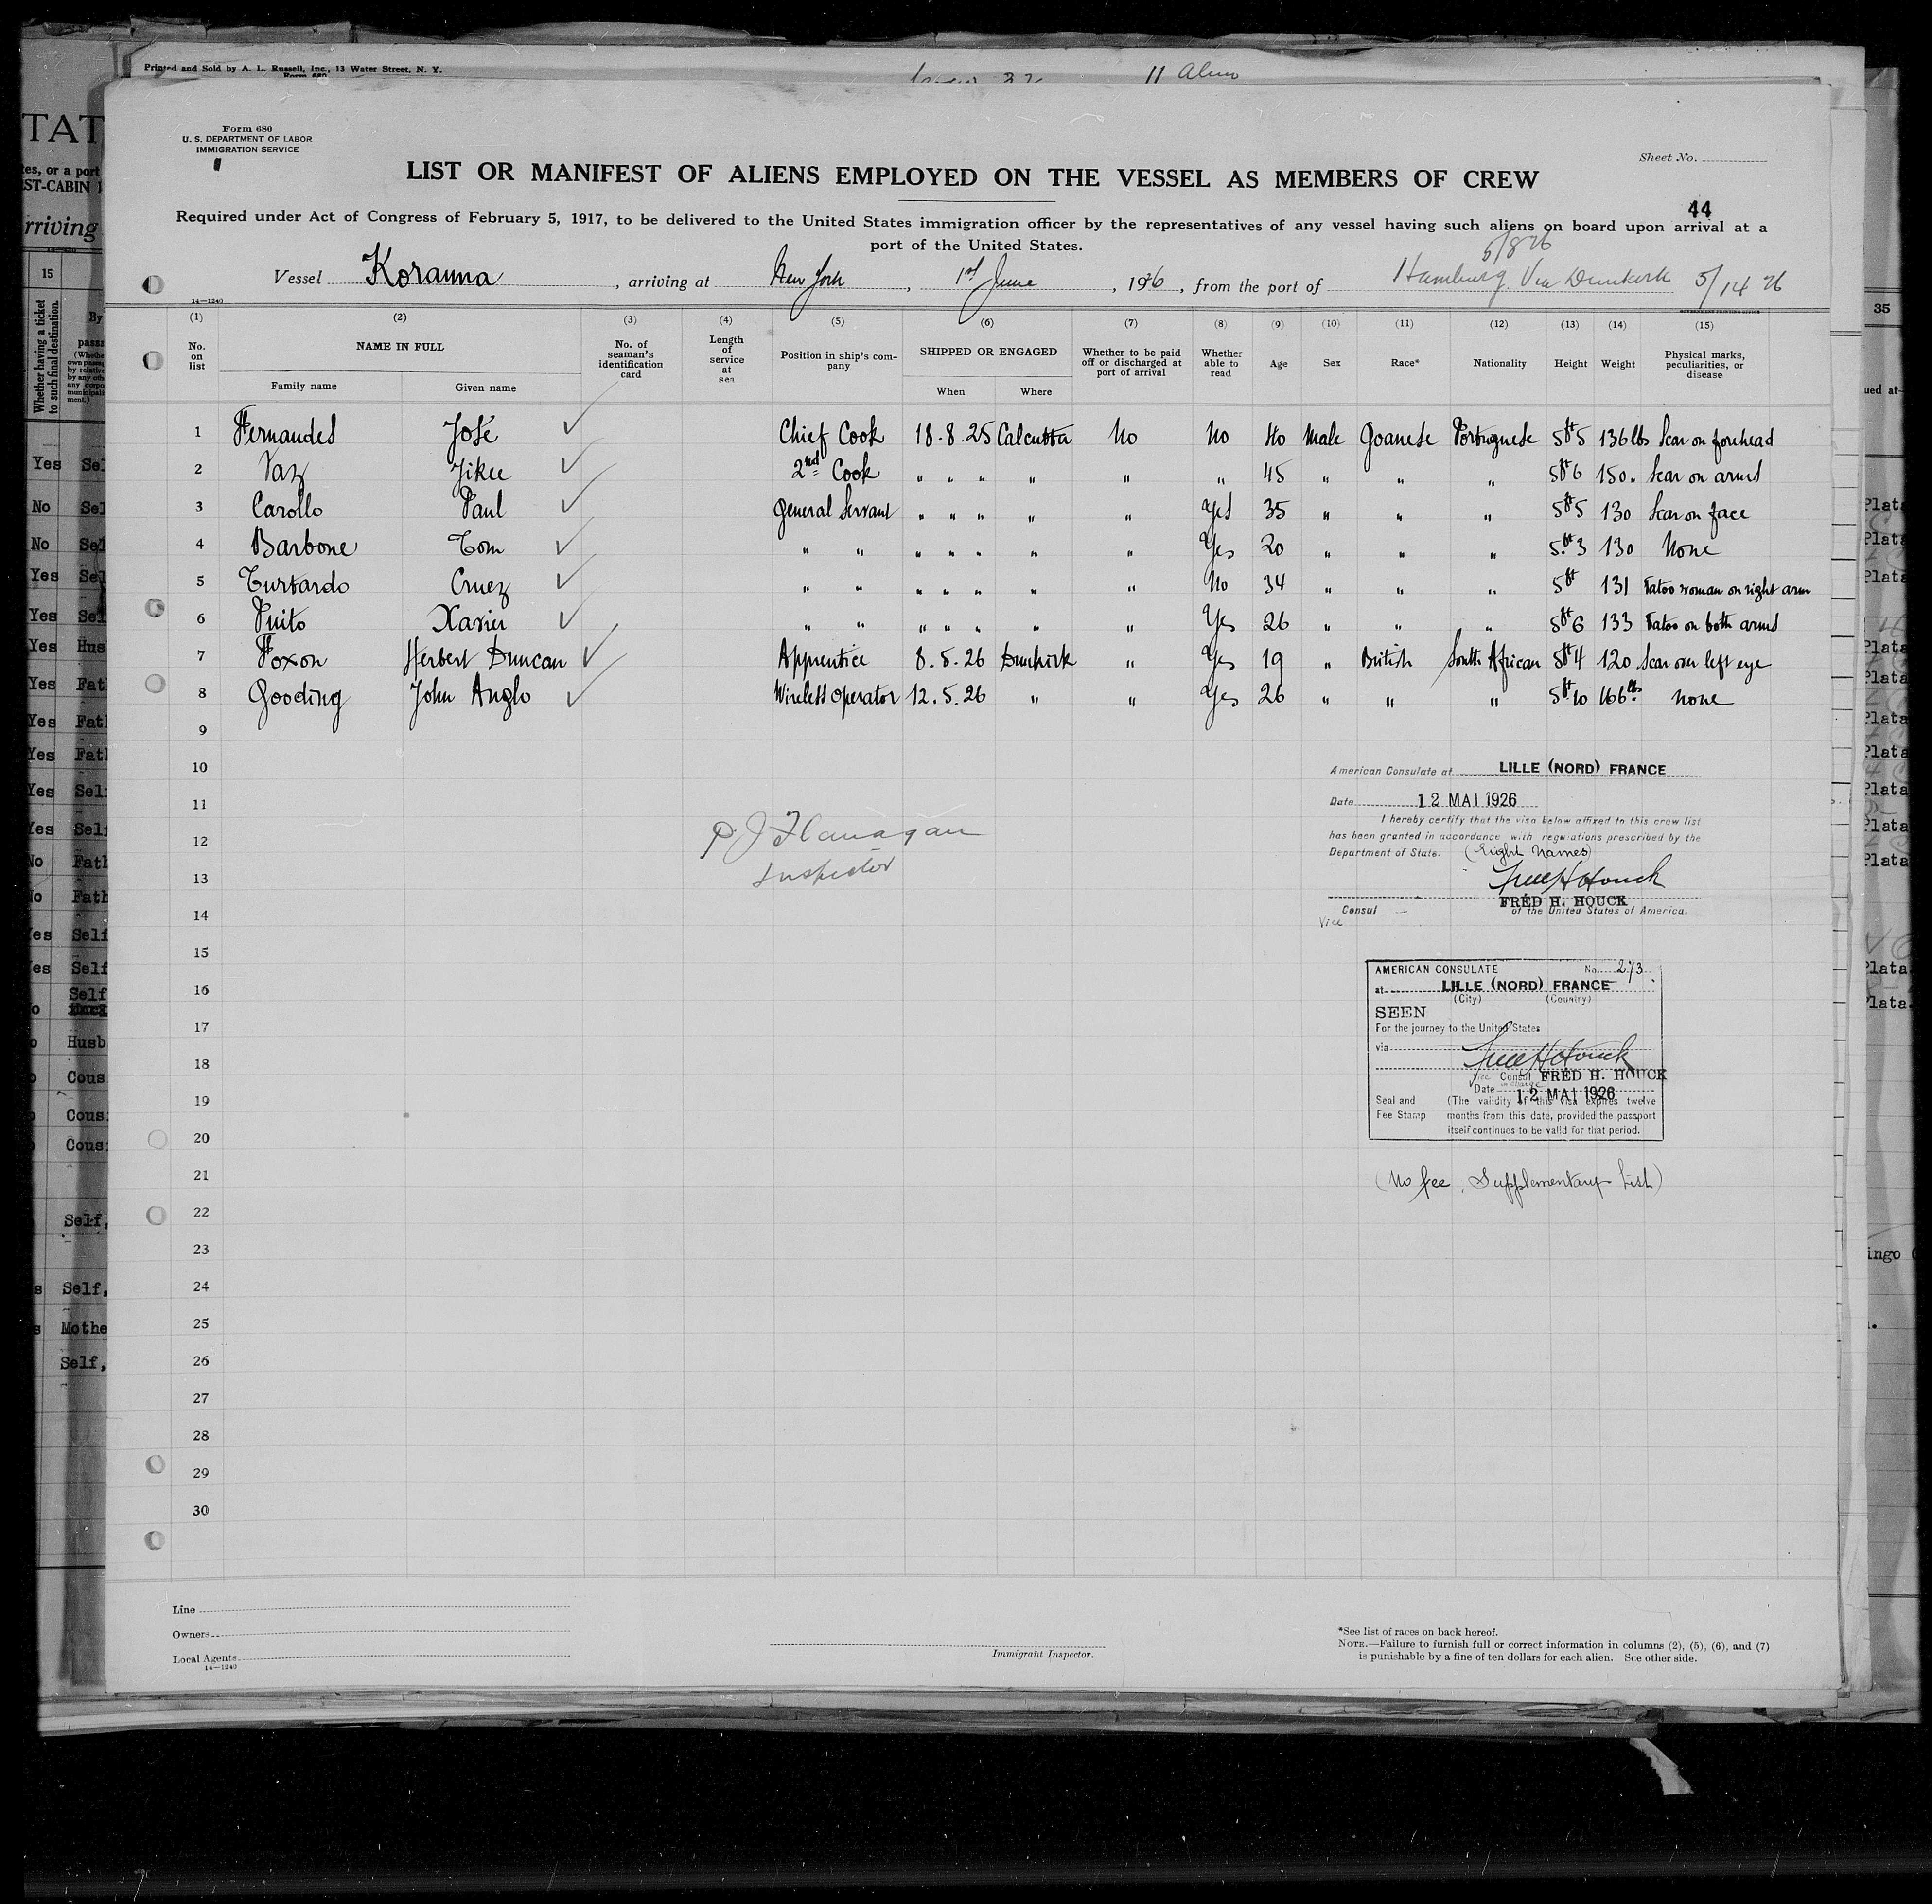 Printed and Sold by A. L. Russell, Inc., 13 Water Street, N. Y.
Form 680
11 Alien
Form 680
U. S. DEPARTMENT OF LABOR
IMMIGRATION SERVICE
Sheet No.
LIST OR MANIFEST OF ALIENS EMPLOYED ON THE VESSEL AS MEMBERS OF CREW
44
Required under Act of Congress of February 5, 1917, to be delivered to the United States immigration officer by the representatives of any vessel having such aliens on board upon arrival at a
port of the United States.
5/8 26
Vessel Koranna, arriving at New York, 1st June, 1926, from the port of Hamburg Via Dunkirk 5/14 26
14—1240
(1) (2) (3) (4) (5) (6) (7) (8) (9) (10) (11) (12) (13) (14) (15)
No. on list NAME IN FULL Family name Given name No. of seaman's identification card Length of service at sea Position in ship's company SHIPPED OR ENGAGED When Where Whether to be paid off or discharged at port of arrival Whether able to read Age Sex Race* Nationality Height Weight Physical marks, peculiarities, or disease
1 Fernandes José Chief Cook 18.8.25 Calcutta No No 40 Male Goanese Portuguese 5ft 5 136 lbs Scar on forehead
2 Vaz 2nd Cook " " " " " " 45 " " " 5ft 6 150 . Scar on arms
3 Carollo Paul General Servant " " " " " Yes 35 " " " 5ft 5 130 Scar on face
4 Barbone Tom " " " " " " " Yes 20 " " " 5.ft 3 130 None
5 Cruez " " " " " " " No 34 " " " 5ft 131 Tatoo woman on right arm
6 Xavier " " " " " " " Yes 26 " " " 5ft 6 133 Tatoo on both arms
7 Foxon Herbert Duncan Apprentice 8.5.26 Dunkirk " Yes 19 " British South African 5ft 4 120 Scar over left eye
8 Gooding John Anglo Wireless Operator 12.5.26 " " Yes 26 " " " 5ft 10 166 lbs None
9
10
11
12
13
14
15
16
17
18
19
20
21
22
23
24
25
26
27
28
29
30
P J Flanagan
Inspector
American Consulate at LILLE (NORD) FRANCE
Date 12 MAI 1926
I hereby certify that the visa below affixed to this crew list
has been granted in accordance with regulations prescribed by the
Department of State. (Eight Names)
Fred H Houck
FRED H. HOUCK
Vice Consul of the United States of America.
AMERICAN CONSULATE No. 273.
at LILLE (NORD) FRANCE
(City) (Country)
SEEN
For the journey to the United States
via
Fred H Houck
Vice Consul FRED H. HOUCK
Date 12 MAI 1926
Seal and Fee Stamp
(The validity of this visa expires twelve
months from this date, provided the passport
itself continues to be valid for that period.
(No fee, Supplementary List)
Line
Owners
Local Agents
14—1240
Immigrant Inspector.
*See list of races on back hereof.
NOTE.—Failure to furnish full or correct information in columns (2), (5), (6), and (7)
is punishable by a fine of ten dollars for each alien. See other side.